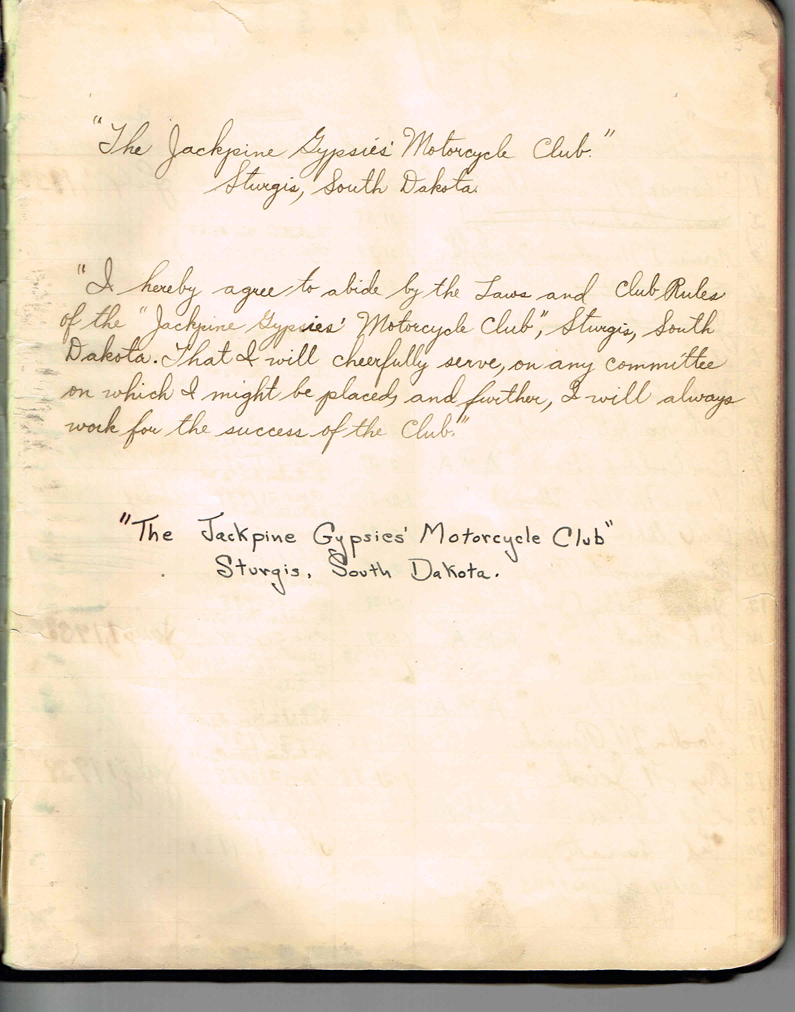 "The Jackpine Gypsies' Motorcycle Club."
Sturgis, South Dakota.
"I hereby agree to abide by the Laws and Club Rules
of the "Jackpine Gypsies' Motorcycle Club", Sturgis, South
Dakota. That I will cheerfully serve, on any committee
on which I might be placed, and further, I will always
work for the success of the Club."
"The Jackpine Gypsies' Motorcycle Club"
Sturgis, South Dakota.